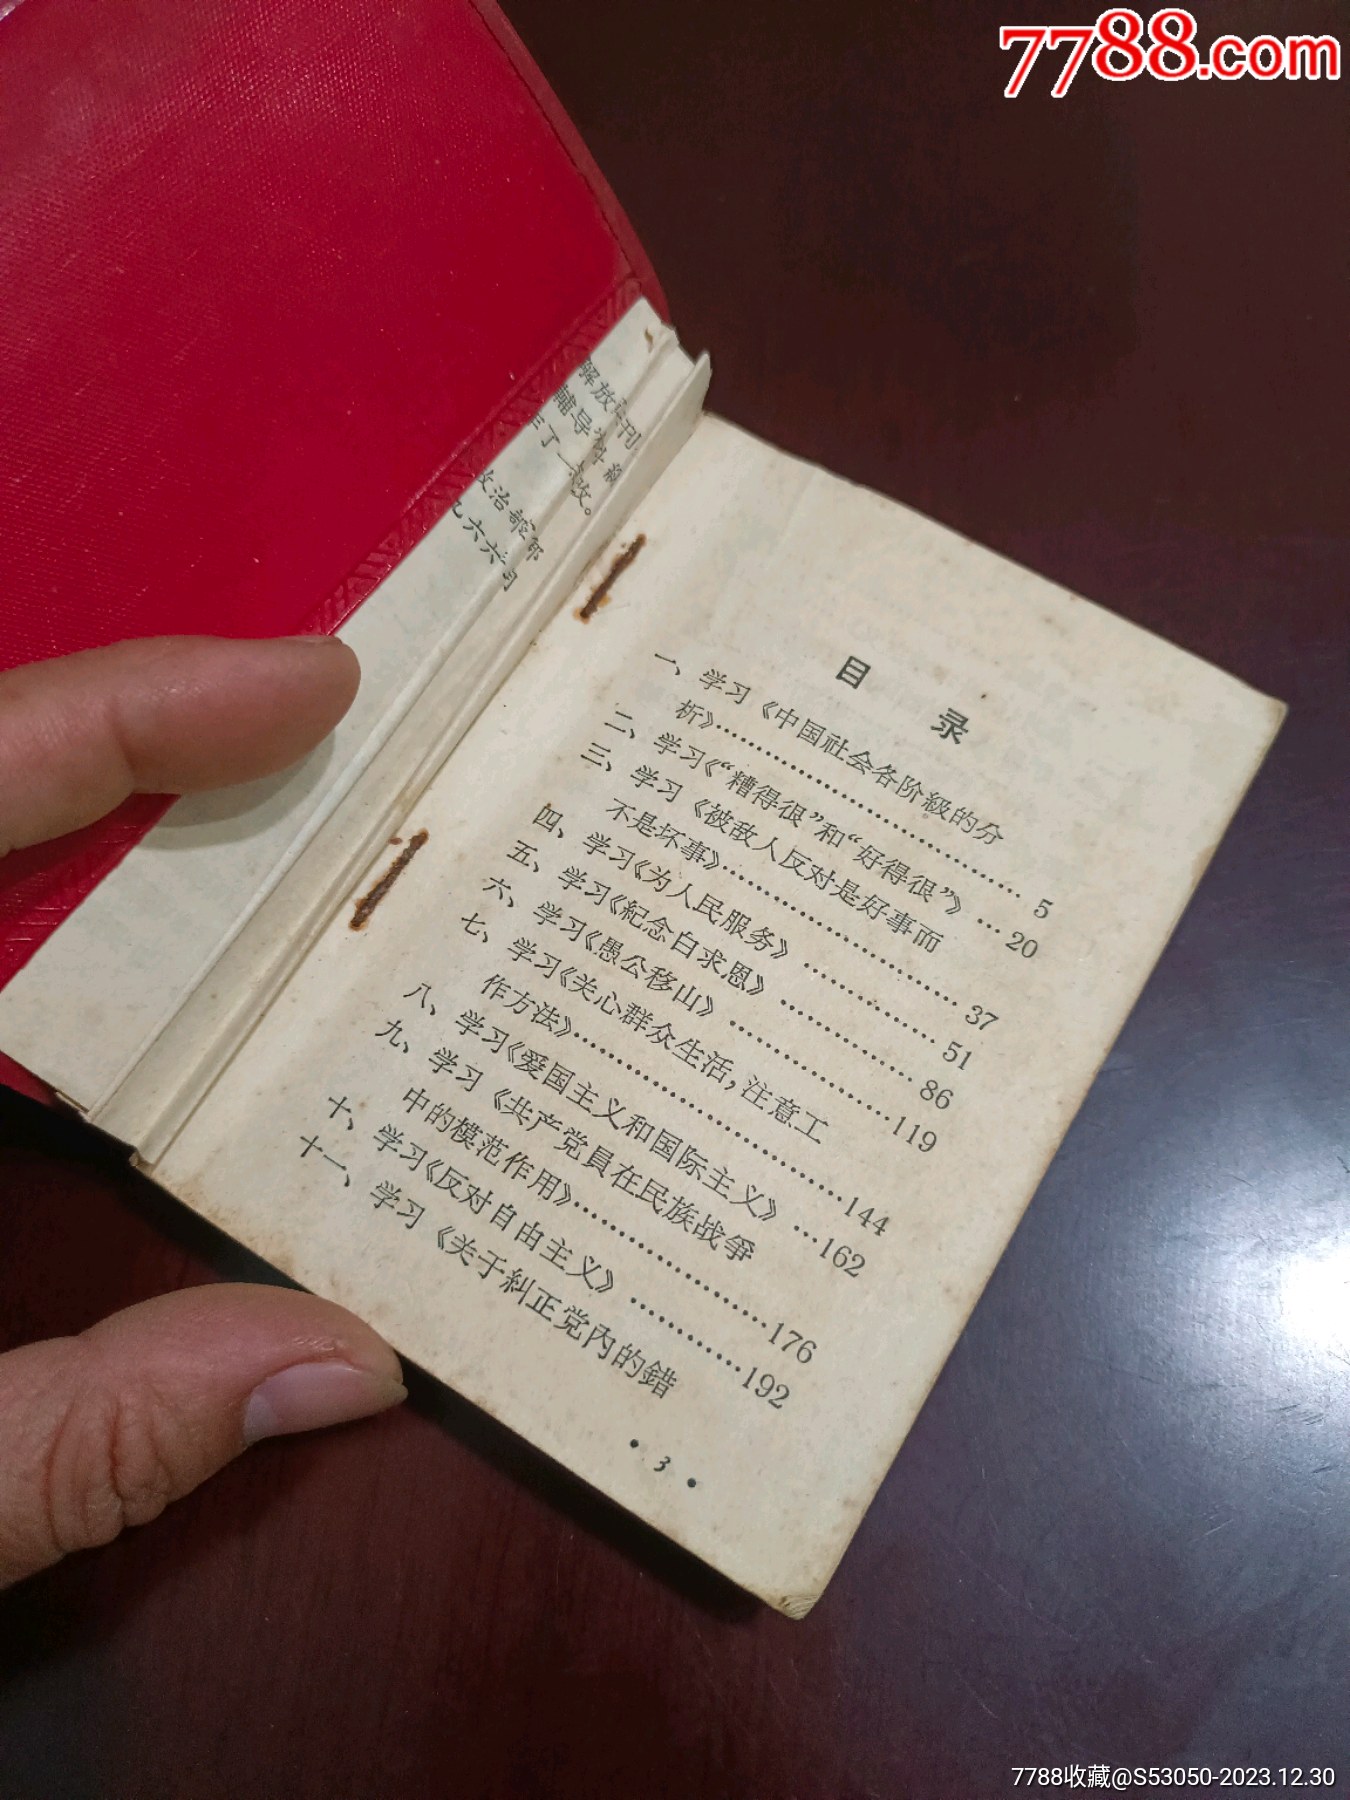 7788.com
解放軍刊
輔导材料
作了
改。
政治部
九六六
目 录
一、学习《中国社会各阶級的分
析》……5
二、学习《“糟得很”和“好得很”》…20
三、学习《被敌人反对是好事而
不是坏事》……37
四、学习《为人民服务》……51
五、学习《紀念白求恩》……86
六、学习《愚公移山》……119
七、学习《关心群众生活，注意工
作方法》……144
八、学习《爱国主义和国际主义》…162
九、学习《共产党員在民族战爭
中的模范作用》……176
十、学习《反对自由主义》……192
十一、学习《关于糾正党內的錯
• 3 •
7788收藏@S53050-2023.12.30